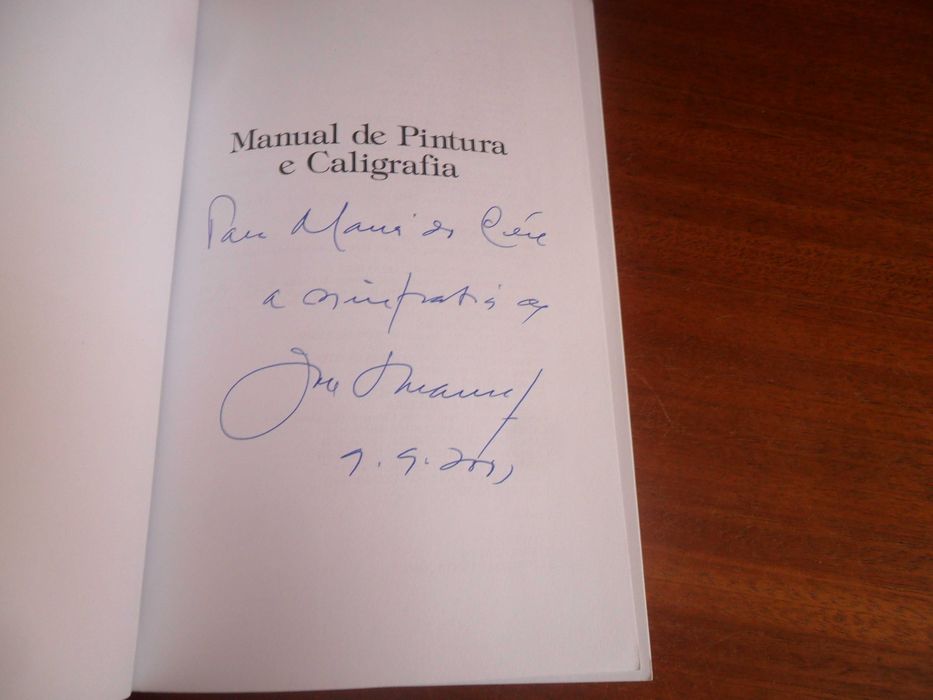 Manual de Pintura
e Caligrafia
Para Maria do Céu
a simpatia de
José Saramago